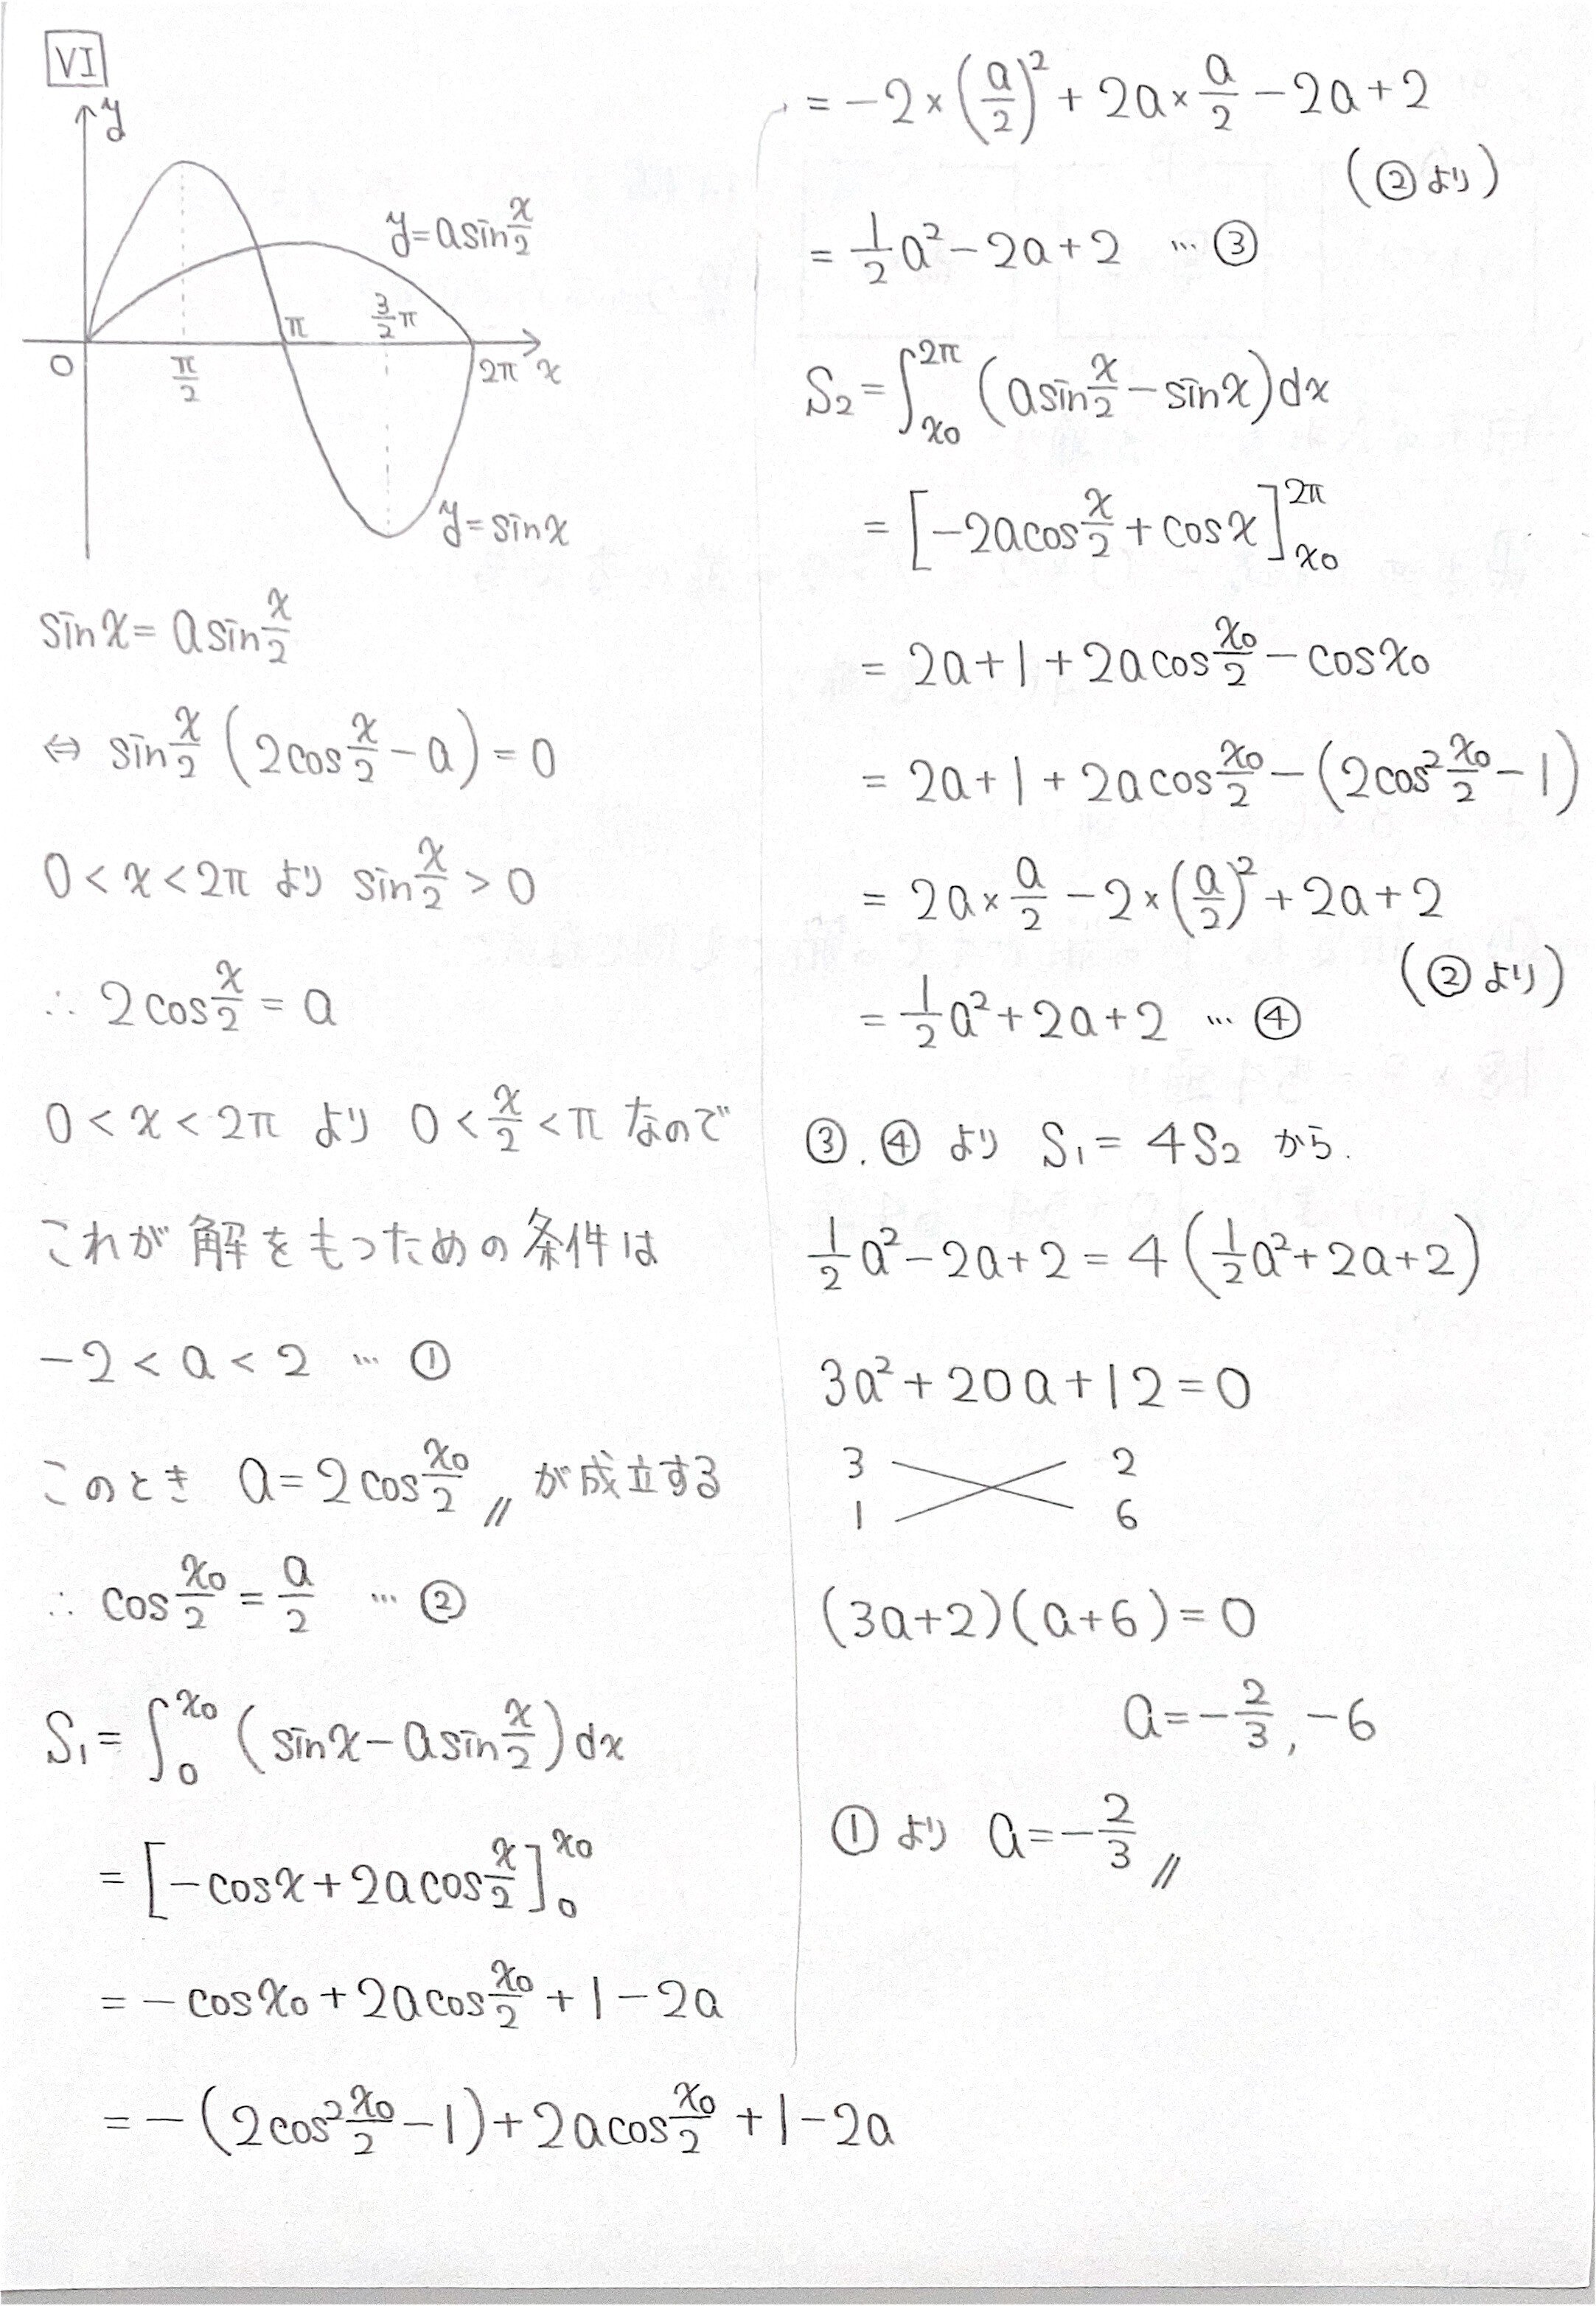 VI
y
y=asin x/2
π
3/2 π
0
π/2
2π x
y=sinx
sinx= asin x/2
⇔ sin x/2 (2cos x/2 −a)=0
0<x<2π より sin x/2 >0
∴ 2cos x/2 = a
0<x<2π より 0< x/2 <π なので
これが解をもつための条件は
−2<a<2 … ①
このとき a=2cos x₀/2 〃 が成立する
∴ cos x₀/2 = a/2 … ②
S₁= ∫₀^x₀ (sinx−asin x/2)dx
= [−cosx+2acos x/2]₀^x₀
= −cosx₀+2acos x₀/2 +1−2a
= −(2cos² x₀/2 −1)+2acos x₀/2 +1−2a
= −2×(a/2)²+2a× a/2 −2a+2
(②より)
= 1/2 a²−2a+2 … ③
S₂= ∫_x₀^2π (asin x/2 −sinx)dx
= [−2acos x/2 +cosx]_x₀^2π
= 2a+1+2acos x₀/2 −cosx₀
= 2a+1+2acos x₀/2 −(2cos² x₀/2 −1)
= 2a× a/2 −2×(a/2)²+2a+2
(②より)
= 1/2 a²+2a+2 … ④
③.④ より S₁= 4S₂ から.
1/2 a²−2a+2=4(1/2 a²+2a+2)
3a²+20a+12=0
3 2
1 6
(3a+2)(a+6)=0
a=−2/3, −6
①より a=−2/3 〃